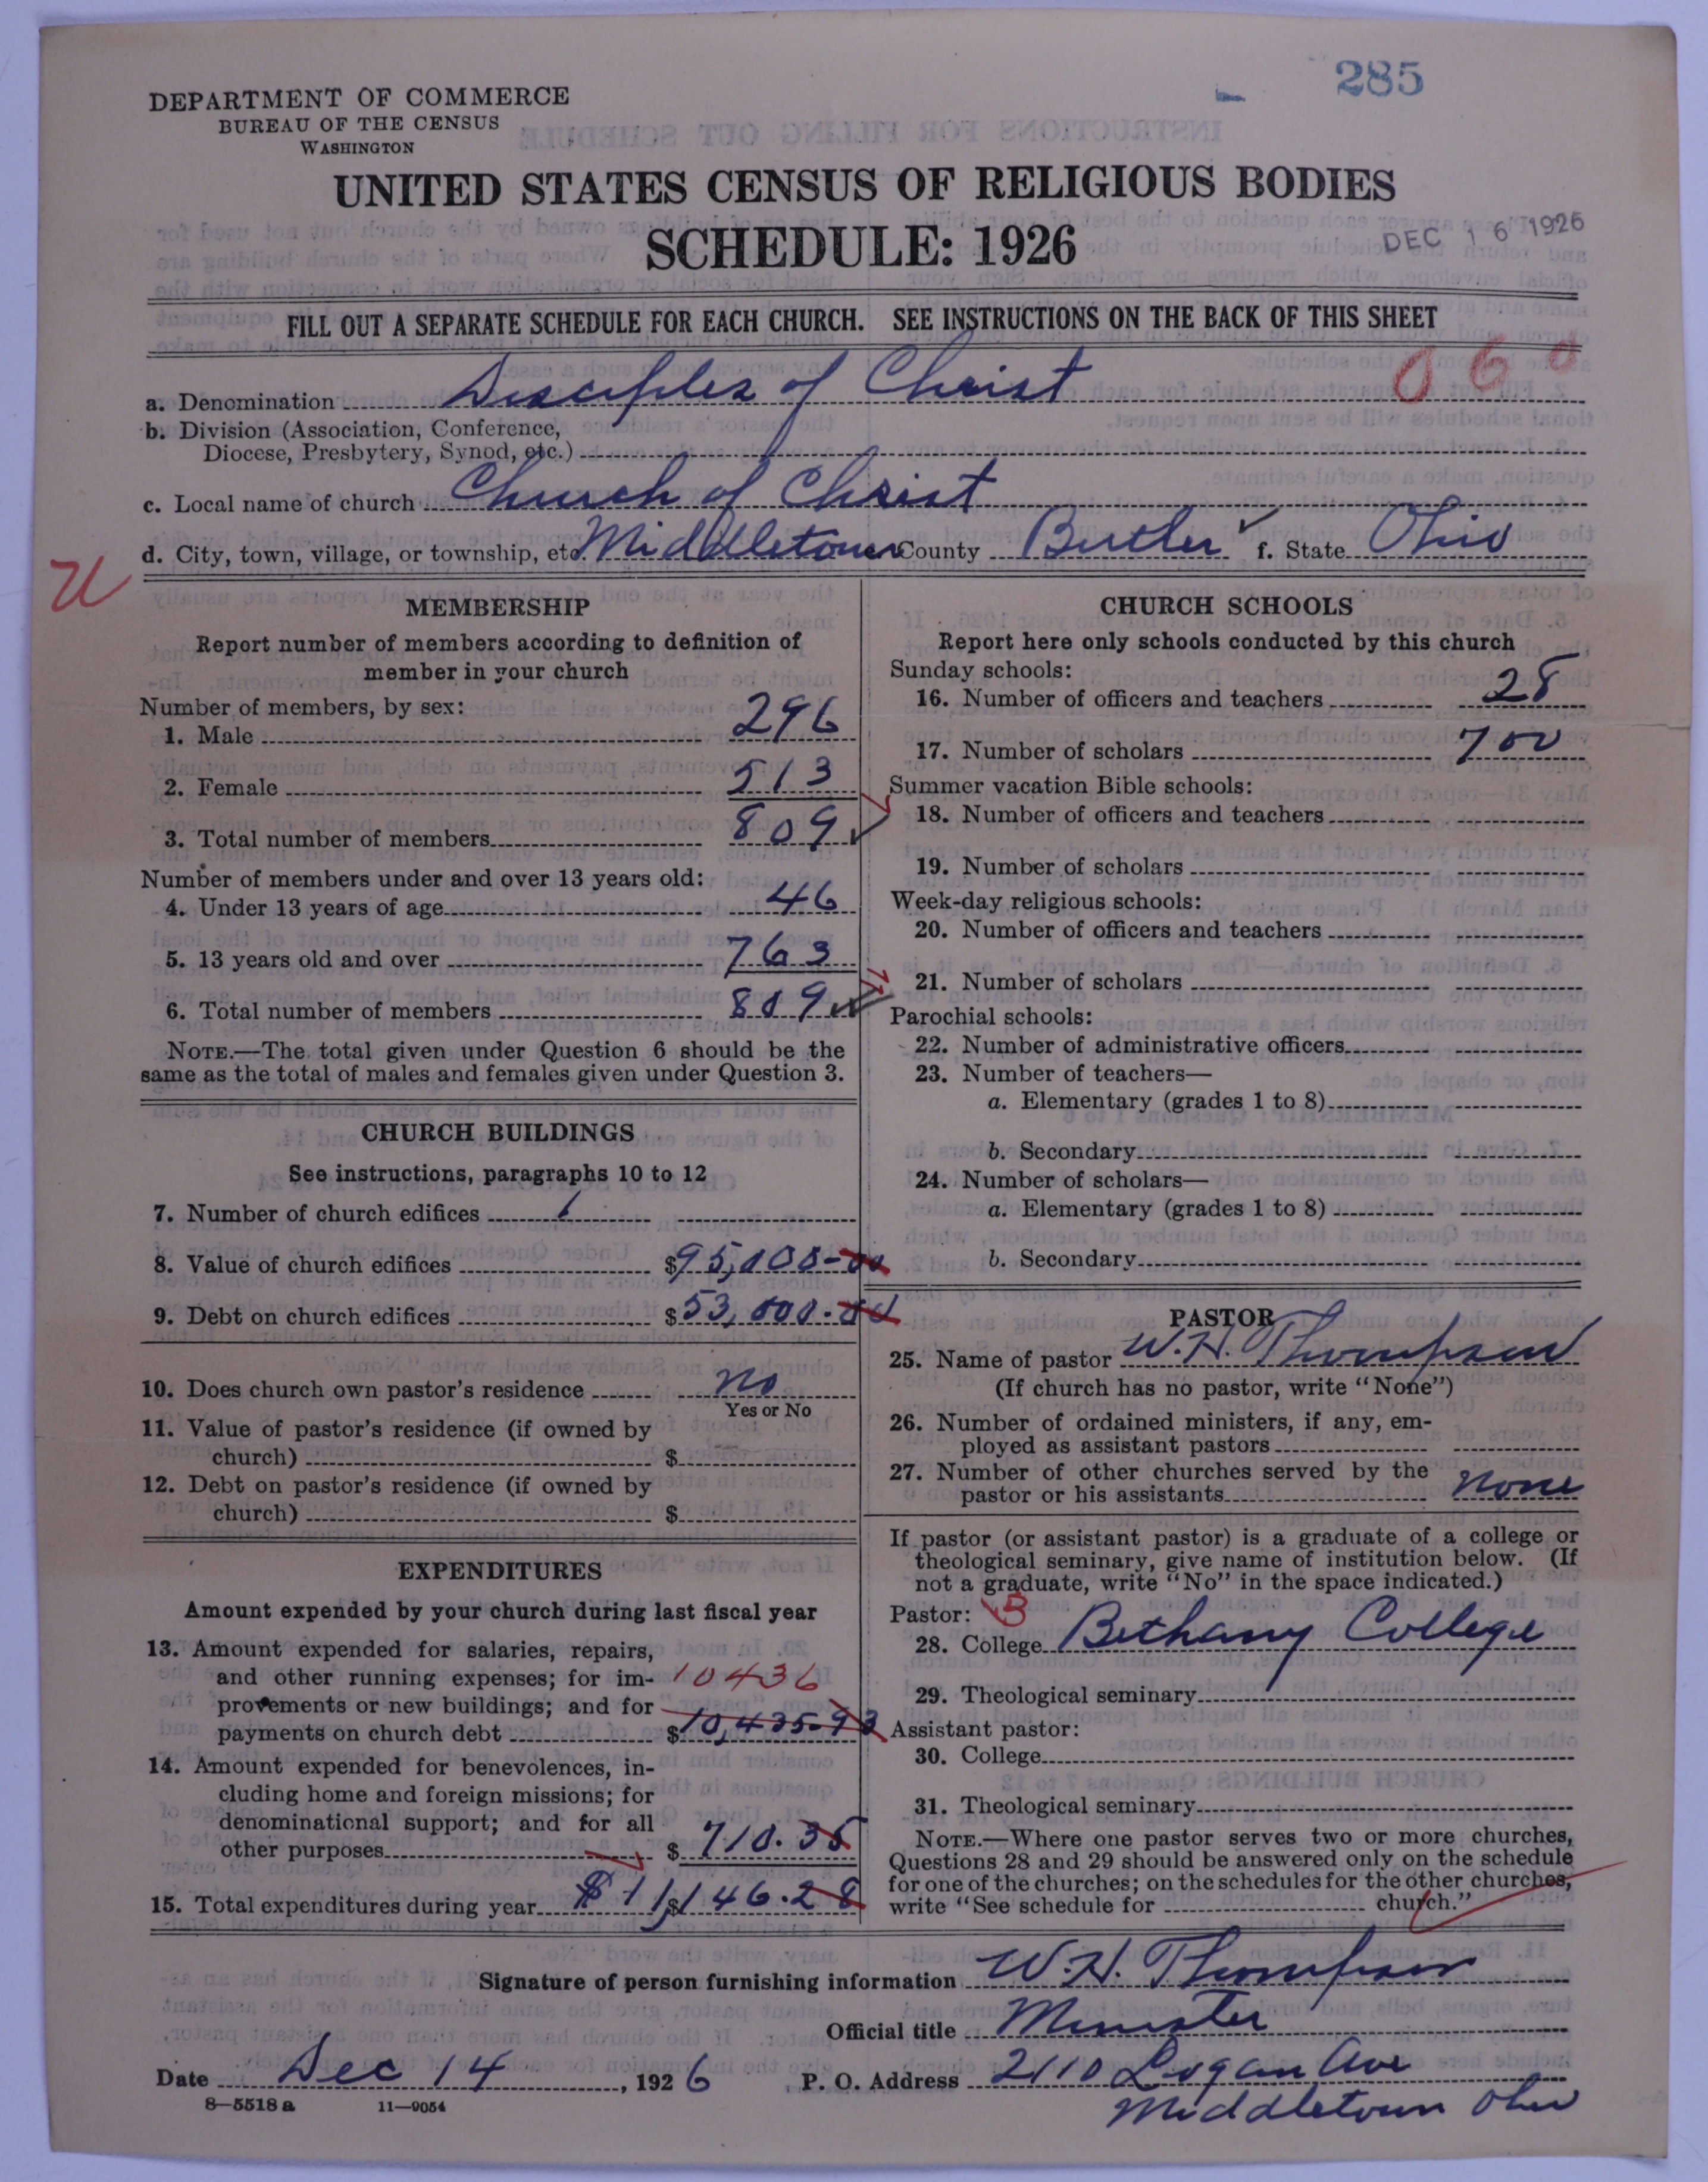 285
DEPARTMENT OF COMMERCE
BUREAU OF THE CENSUS
WASHINGTON
UNITED STATES CENSUS OF RELIGIOUS BODIES
SCHEDULE: 1926
DEC 16 1926
FILL OUT A SEPARATE SCHEDULE FOR EACH CHURCH. SEE INSTRUCTIONS ON THE BACK OF THIS SHEET
060
a. Denomination Disciples of Christ
b. Division (Association, Conference,
Diocese, Presbytery, Synod, etc.)
c. Local name of church Church of Christ
d. City, town, village, or township, etc. Middletown County Butler f. State Ohio
U
MEMBERSHIP
Report number of members according to definition of
member in your church
Number of members, by sex:
1. Male 296
2. Female 513
3. Total number of members 809
Number of members under and over 13 years old:
4. Under 13 years of age 46
5. 13 years old and over 763
6. Total number of members 809
NOTE.—The total given under Question 6 should be the
same as the total of males and females given under Question 3.
CHURCH BUILDINGS
See instructions, paragraphs 10 to 12
7. Number of church edifices 1
8. Value of church edifices $95,000-00
9. Debt on church edifices $53,000.00
10. Does church own pastor's residence no
Yes or No
11. Value of pastor's residence (if owned by
church) $
12. Debt on pastor's residence (if owned by
church) $
EXPENDITURES
Amount expended by your church during last fiscal year
13. Amount expended for salaries, repairs,
and other running expenses; for im- 10436
provements or new buildings; and for
payments on church debt $10,435-93
14. Amount expended for benevolences, in-
cluding home and foreign missions; for
denominational support; and for all
other purposes $ 710.35
15. Total expenditures during year $ 11,146.28
CHURCH SCHOOLS
Report here only schools conducted by this church
Sunday schools:
16. Number of officers and teachers 28
17. Number of scholars 700
Summer vacation Bible schools:
18. Number of officers and teachers
19. Number of scholars
Week-day religious schools:
20. Number of officers and teachers
21. Number of scholars
Parochial schools:
22. Number of administrative officers
23. Number of teachers—
a. Elementary (grades 1 to 8)
b. Secondary
24. Number of scholars—
a. Elementary (grades 1 to 8)
b. Secondary
PASTOR
25. Name of pastor W. H. Thompson
(If church has no pastor, write "None")
26. Number of ordained ministers, if any, em-
ployed as assistant pastors
27. Number of other churches served by the
pastor or his assistants none
If pastor (or assistant pastor) is a graduate of a college or
theological seminary, give name of institution below. (If
not a graduate, write "No" in the space indicated.)
Pastor: B
28. College Bethany College
29. Theological seminary
Assistant pastor:
30. College
31. Theological seminary
NOTE.—Where one pastor serves two or more churches,
Questions 28 and 29 should be answered only on the schedule
for one of the churches; on the schedules for the other churches,
write "See schedule for church."
Signature of person furnishing information W. H. Thompson
Official title Minister
Date Dec 14, 1926 P. O. Address 2110 Logan Ave
8—5518a 11—9054 Middletown Ohio